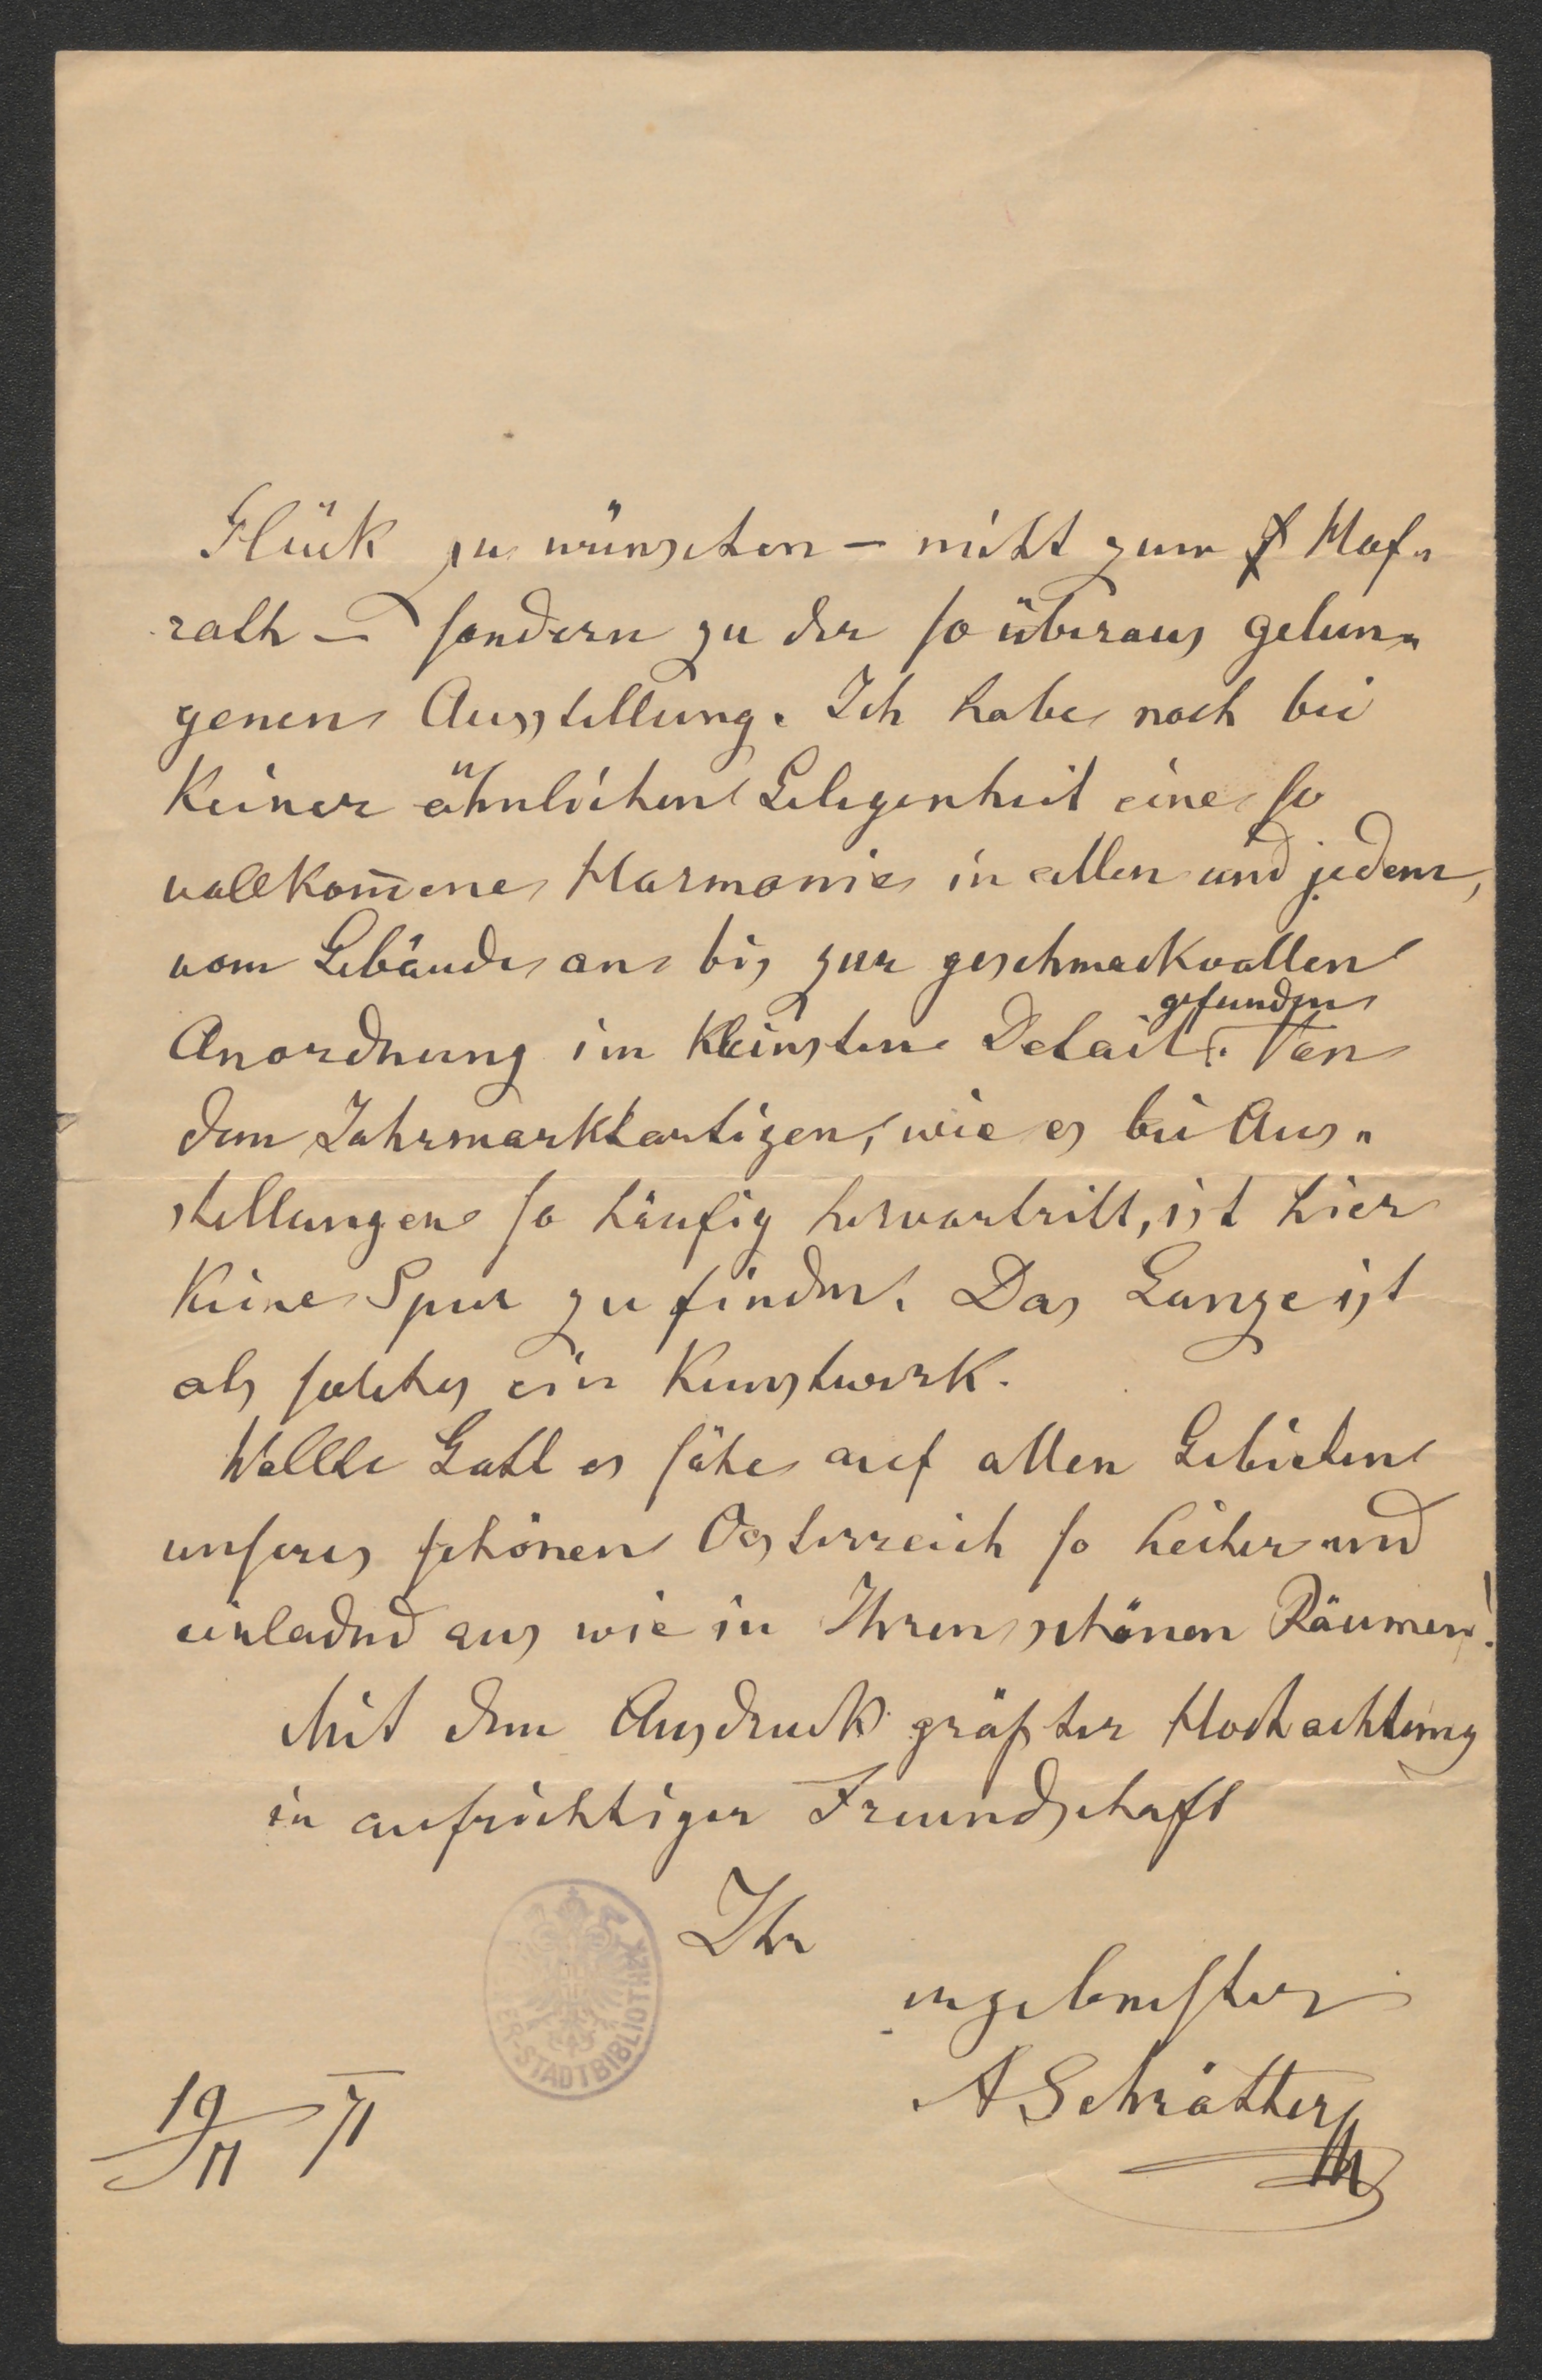 Glück zu wünschen – nicht zum Hof„
rath – sondern zu der so überaus gelun„
genen Ausstellung. Ich habe noch bei
keiner ähnlichen Gelegenheit eine so
vollkom̅ene Harmonie in allen und jedem,
vom Gebäude an bis zur geschmackvollen
gefunden
Anordnung im kleinsten Detail. Von
dem Jahrmarktartigen, wie es bei Aus„
stellungen so häufig hervortritt, ist hier
keine Spur zu finden. Das Ganze ist
als solches ein Kunstwerk.
Wollte Gott es sähe auf allen Gebieten
unseres schönen Oesterreich so heiter und
einladend aus wie in Ihren schönen Räumen!
Mit dem Ausdruck größter Hochachtung
in aufrichtiger Freundschaft
Ihr
ergebenster
ASchrötter
19/11 71
STADTBIBLIOTHEK